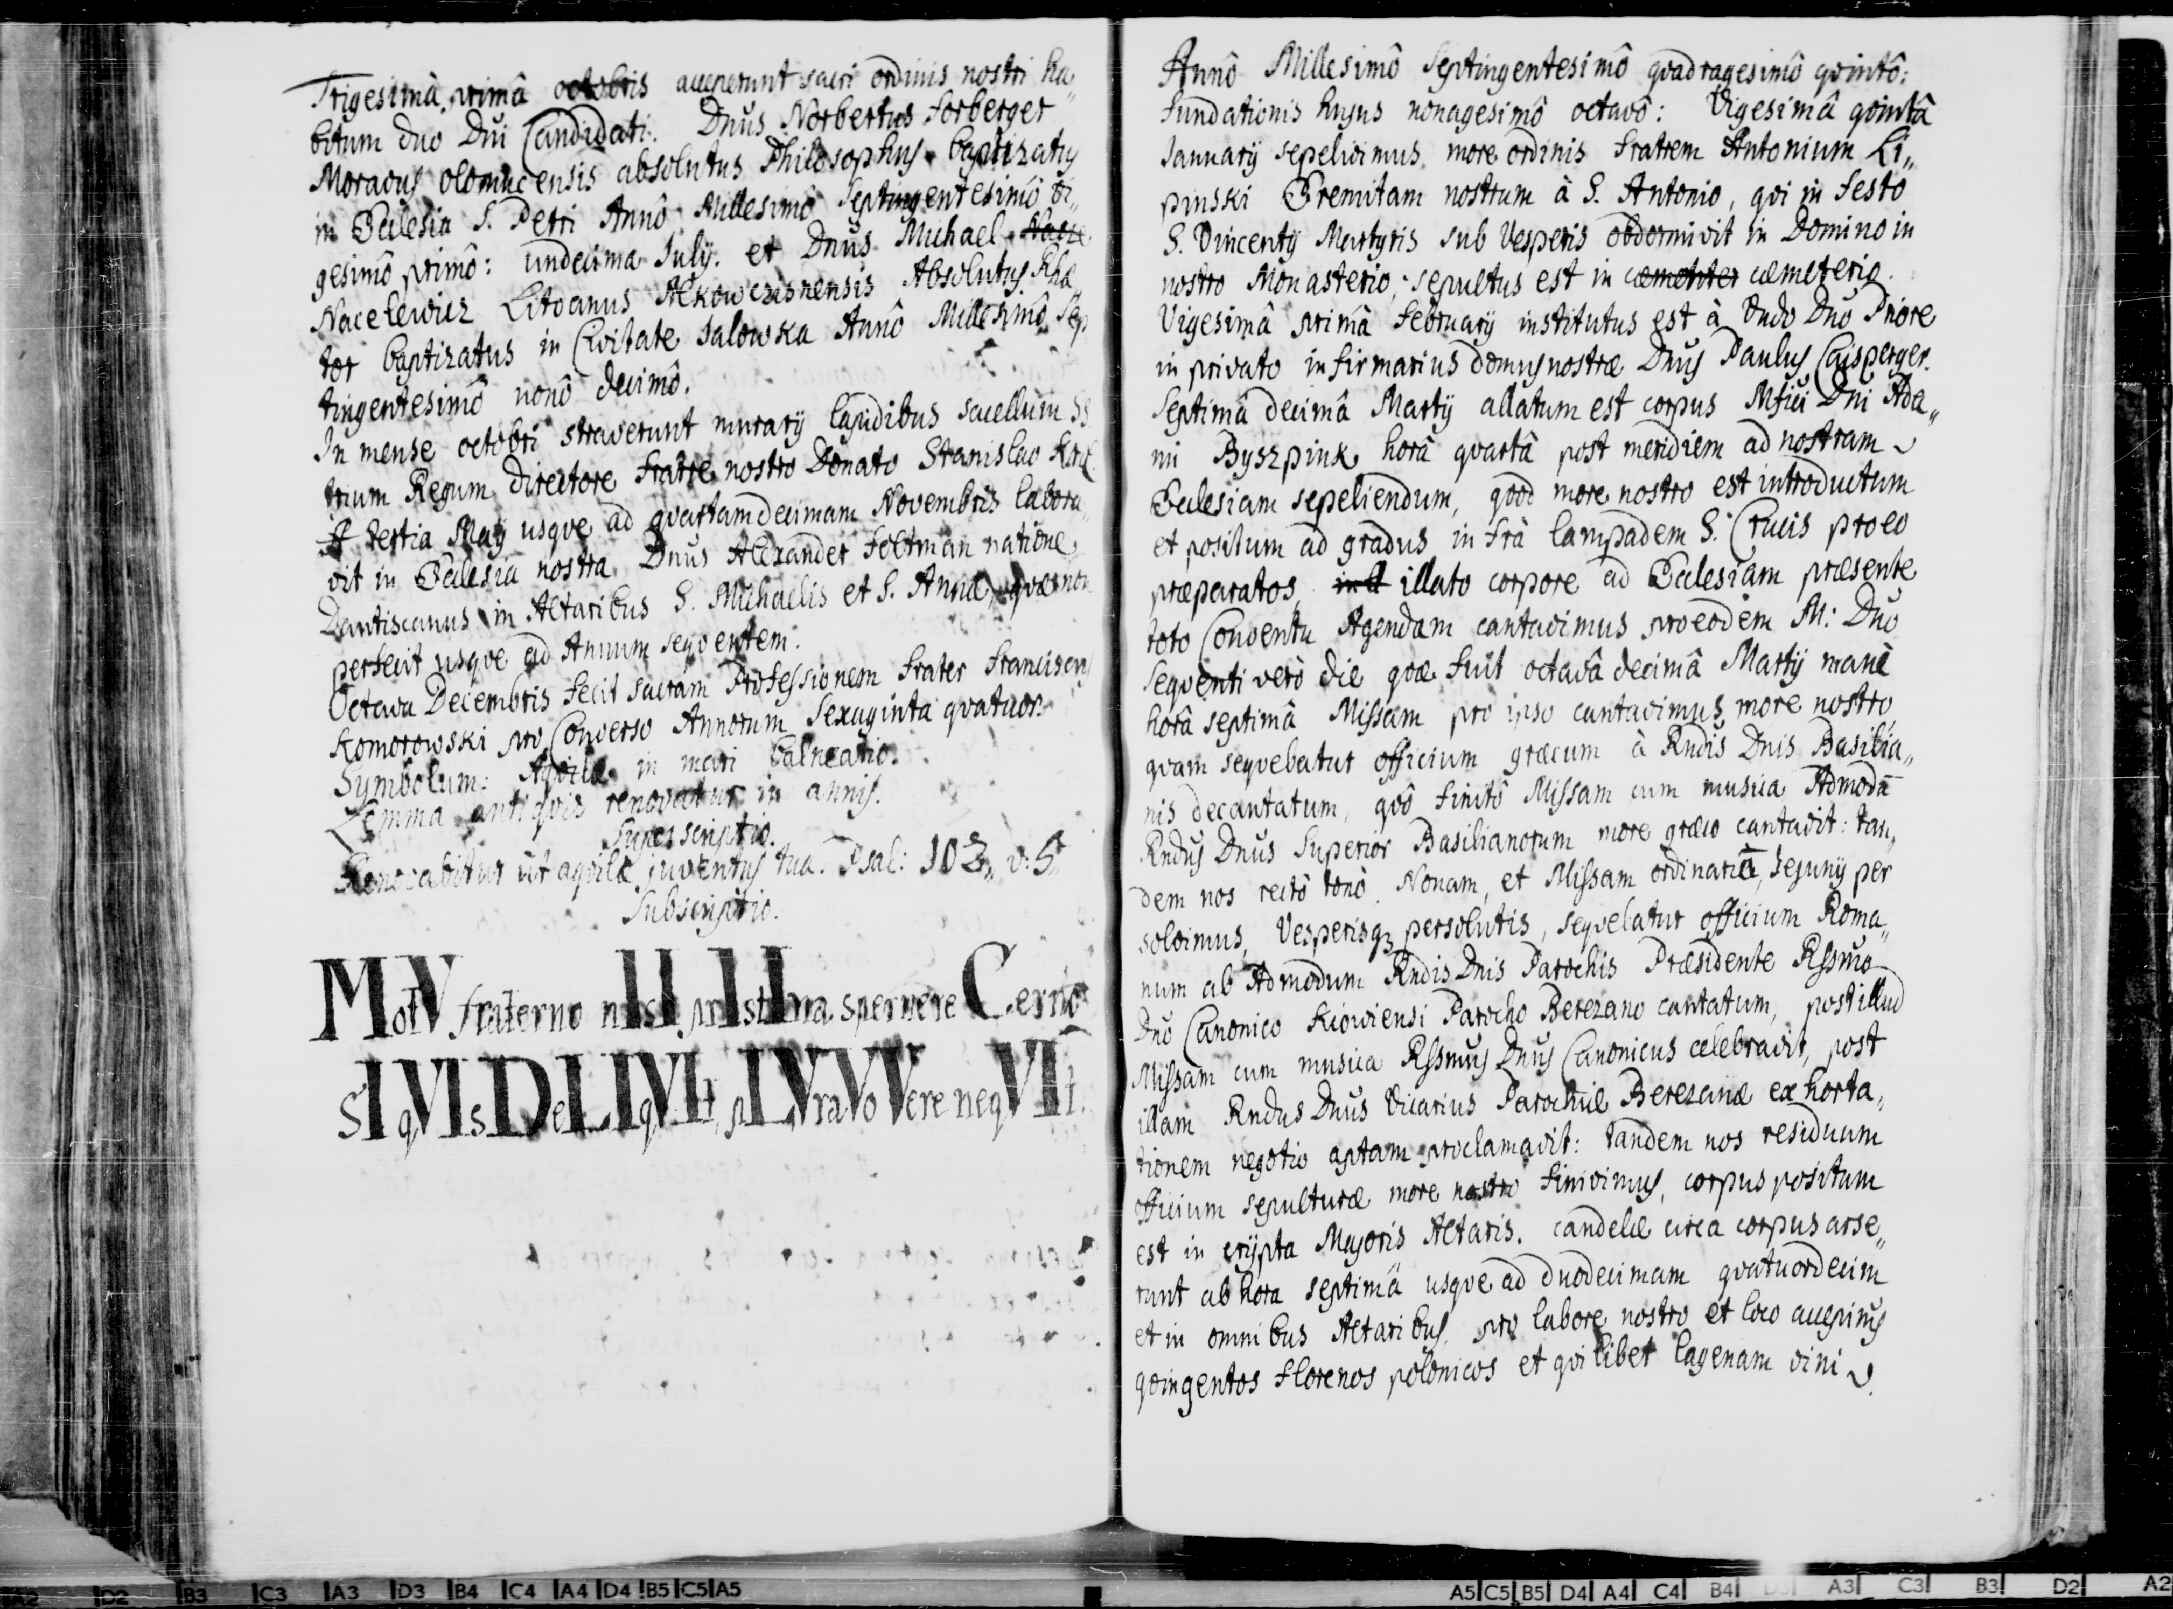 Trigesimâ primâ octobris acceperunt sacri ordinis nostri ha„
bitum duo Dni Candidati: Dnus Norbertus Forberger
Moravus olomucensis absolutus Philosophus baptizatus
in Ecclesia S. Petri Annô Millesimô Septingentesimô vi„
gesimô primô: undecima July. et Dnus Michael
Nacelewicz Litvanus Absolutus Rhe„
tor baptizatus in Civitate Salowska Annô Millesimô Sep
tingentesimô nonô decimô.
In mense octobri straverunt murarij lapidibus sacellum SS
trium Regum directore fratre nostro Donato Stanislao
A tertia Maij usque ad quartamdecimam Novembris labora„
vit in Ecclesia nostra Dnus Alexander Foltman natione
Dantiscanus in Altaribus S. Michaelis et S. Annæ, quæ non
perfecit usque ad Annum sequentem.
Octava Decembris fecit sacram Professionem frater Franciscus
Komorowski pro Converso Annorum Sexaginta quatuor.
Symbolum: Aquila in mari balneatio.
Lemma antiquis renovatur in annis.
Superscriptio.
Renovabitur ut aquilæ juventus tua. Psal: 102„ v: 5
Subscriptio.
MotV fraterno nIIsI prIstIIna spernere Cerno
SI qVIs DeLIqVIt, pLVra VoVere neqVIIt.
Annô Millesimô Septingentesimô quadragesimô quintô:
fundationis hujus nonagesimô octavô: Vigesimâ quintâ
January sepelivimus more ordinis fratrem Antonium Li„
pinski Eremitam nostrum à S. Antonio, qui in festo
S. Vincentij Martyris sub Vesperis obdormivit in Domino in
nostro Monasterio, sepultus est in cæmenter cæmeterio.
Vigesimâ primâ February institutus est à Rndo Dno Priore
in privato infirmarius domus nostræ Dnus Paulus Caisperger.
Septimâ decimâ Martij allatum est corpus Mfici Dni Ada„
mi Byszpink horâ quartâ post meridiem ad nostram
Ecclesiam sepeliendum, quod more nostro est introductum
et positum ad gradus infrà lampadem S. Crucis pro eo
præparatos, in d illato corpore ad Ecclesiam præsente
toto Conventu Agendam cantavimus pro eodem M: Dno
Sequenti verò die quæ fuit octavâ decimâ Martij manè
horâ septimâ Missam pro ipso cantavimus more nostro
quam sequebatur officium græcum à Rndis Dnis Basilia„
nis decantatum, quô finitô Missam cum musica Admodū
Rndus Dnus Superior Basilianorum more græco cantavit: tan„
dem nos rectô tonô Nonam, et Missam ordinariā, jejunij per
solvimus, Vesperisq̄ persolutis, sequebatur officium Roma„
num ab Admodum Rndis Dnis Parochis Præsidente Rssmo
Dno Canonico Kiowiensi Parocho Berezano cantatum, post illud
Missam cum musica Rssmus Dnus Canonicus celebravit, post
illam Rndus Dnus Vicarius Parochiæ Berezanæ exhorta„
tionem negotio aptam proclamavit: tandem nos residuum
officium sepulturæ more nostro finivimus, corpus positum
est in crypta Majoris Altaris. candelæ circa corpus arse„
runt ab hora septimâ usque ad duodecimam quatuordecim
et in omnibus Altaribus, pro labore nostro et loco accepimus
quingentos florenos polonicos et quilibet lagenam vini
A2 D2 B3 C3 A3 D3 B4 C4 A4 D4 B5 C5 A5
A5 C5 B5 D4 A4 C4 B4 D3 A3 C3 B3 D2 A2